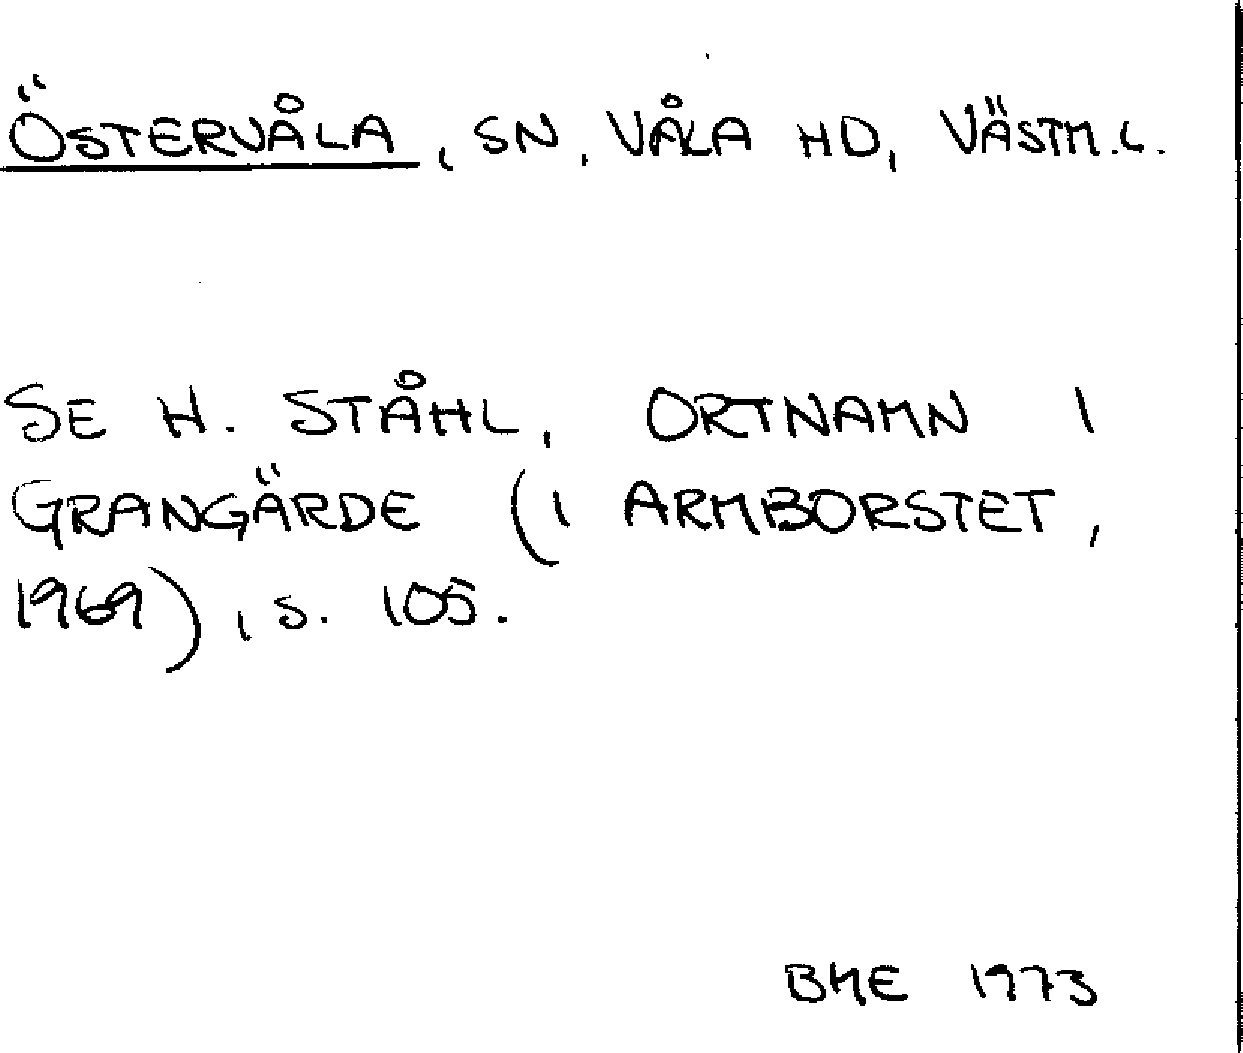 ÖSTERVÅLA, SN, VÅLA HD, VÄSTM.L.
SE H. STÅHL, ORTNAMN I
GRANGÄRDE (I ARMBORSTET,
1969), S. 105.
BME 1973